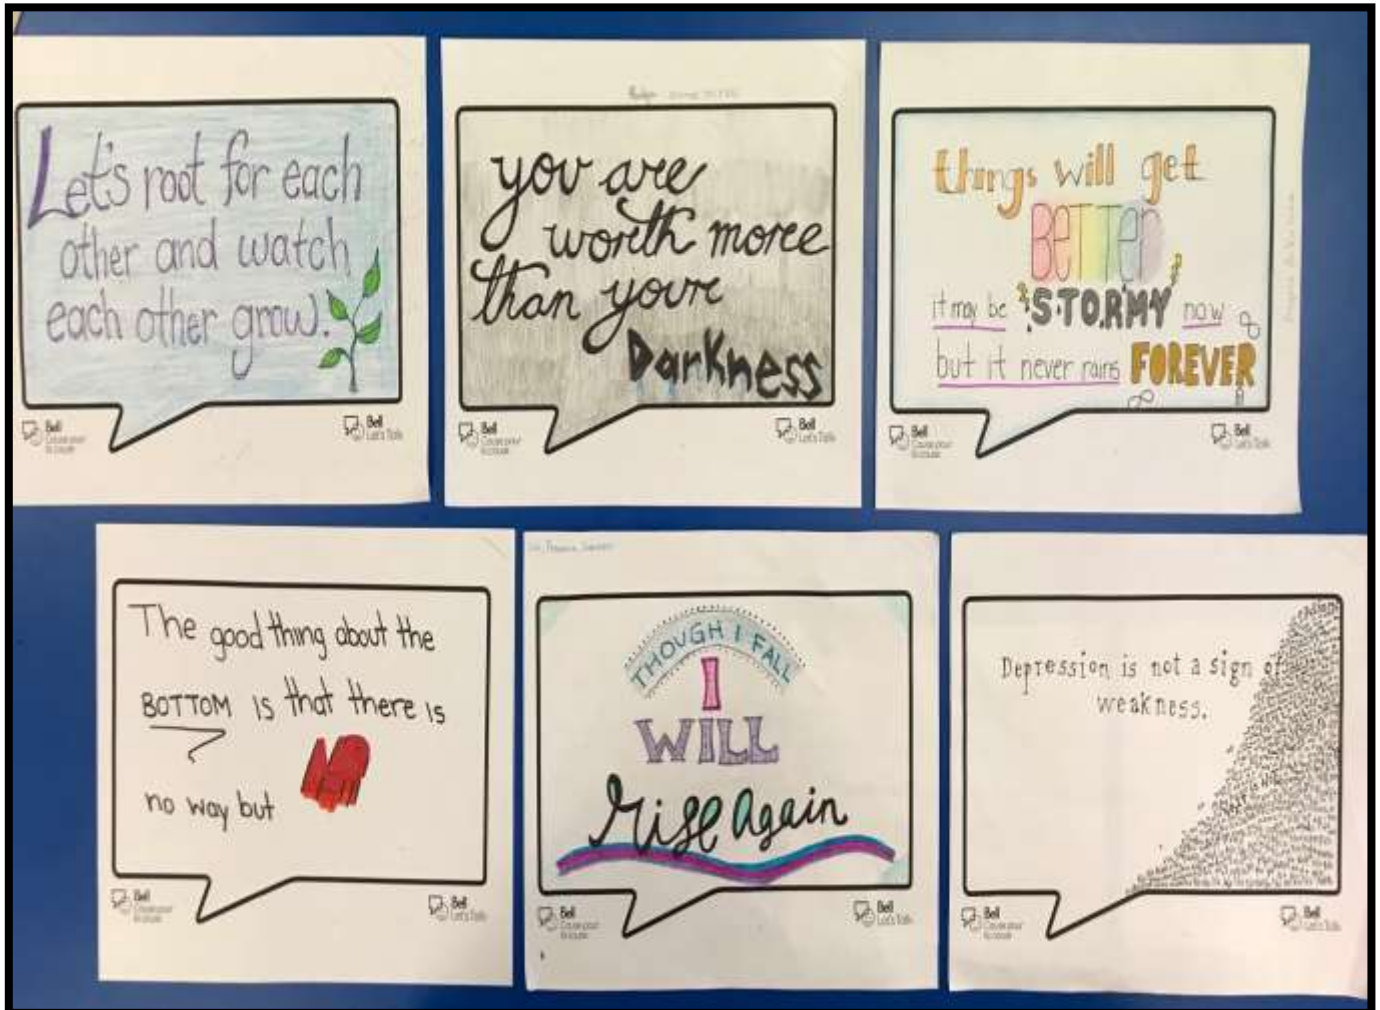 Let's root for each
other and watch
each other grow.
Bell
Cause pour
la cause
Bell
Let's Talk
you are
worth moree
than youre
Darkness
Bell
Cause pour
la cause
Bell
Let's Talk
things will get
BETTER
it may be STORMY now
but it never rains FOREVER
Bell
Cause pour
la cause
Bell
Let's Talk
The good thing about the
BOTTOM is that there is
no way but UP
Bell
Cause pour
la cause
Bell
Let's Talk
THOUGH I FALL
I
WILL
Rise Again
Bell
Cause pour
la cause
Bell
Let's Talk
Depression is not a sign of
weakness.
Bell
Cause pour
la cause
Bell
Let's Talk